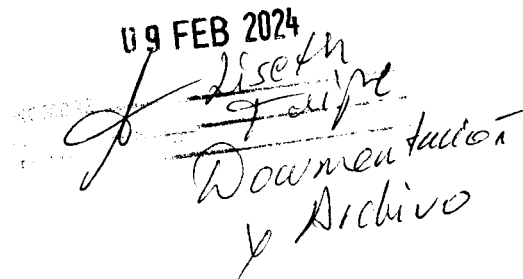 09 FEB 2024
Liseth
Taipe
Documentación
y Archivo